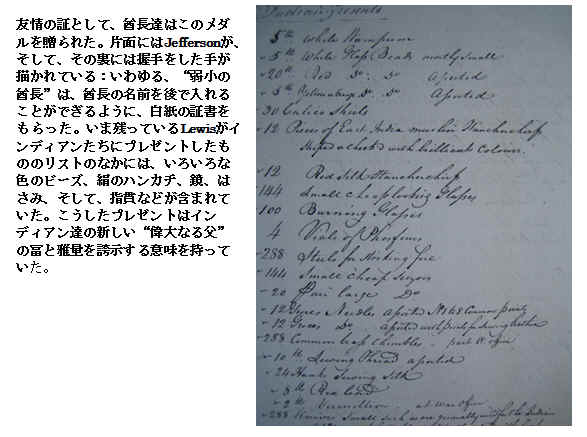 友情の証として、酋長達はこのメダ
ルを贈られた。片面にはJeffersonが、
そして、その裏には握手をした手が
描かれている：いわゆる、“弱小の
酋長”は、酋長の名前を後で入れる
ことができるように、白紙の証書を
もらった。いま残っているLewisがイ
ンディアンたちにプレゼントしたも
ののリストのなかには、いろいろな
色のビーズ、絹のハンカチ、鏡、は
さみ、そして、指貫などが含まれて
いた。こうしたプレゼントはイン
ディアン達の新しい“偉大なる父”
の冨と雅量を誇示する意味を持って
いた。
Indian presents
5 lb White Wampum
5 lb White Glass Beads mostly small
20 lb Red Do. Do. Assorted
5 lb Do. Do. Assorted
30 Calico Shirts
12 Pieces of East India muslin Hanckerchiefs
striped or check'd with brilliant Colours.
12 Red Silk Hanckerchiefs
144 Small cheap looking Glasses
100 Burning Glasses
4 Vials of Phosforus
288 Steels for striking fire
144 Small cheap Scizors
20 Pair large Do
12 Groces Needles Assorted No. 1 to 8 Common points
12 Groces Do. Assorted with points for sewing leather
288 Common brass thimbles part W. office
10 lb Sewing Thread assorted
24 Hanks Sewing Silk
8 lb Red lead
2 lb Vermillion at War Office
288 Knives Small